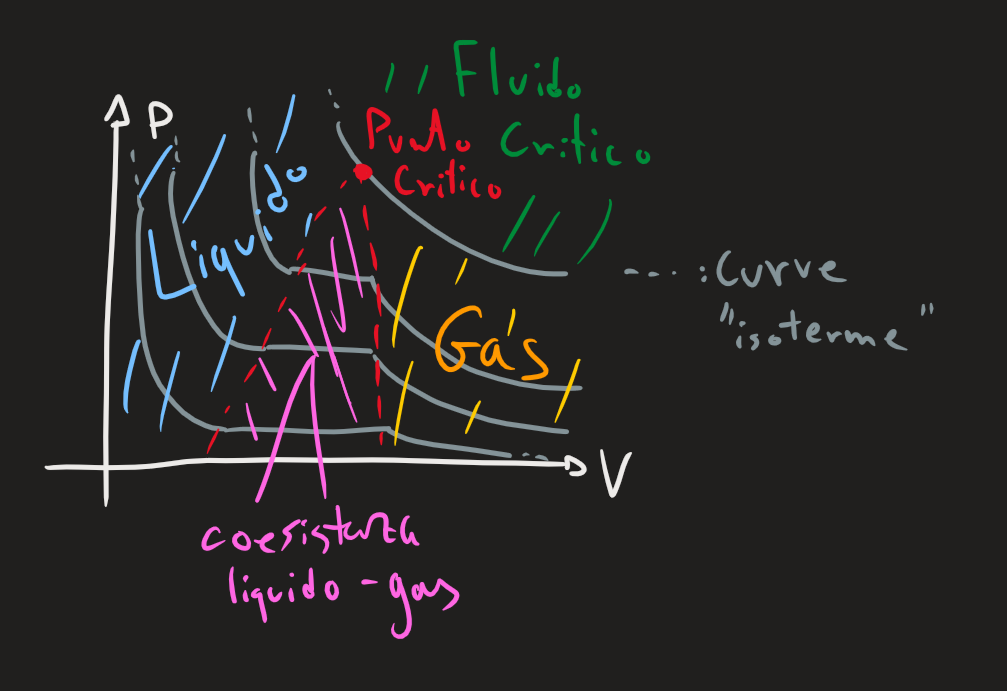 Fluido
Critico
P
Punto
Critico
Liquido
: Curve
"isoterme"
Gas
V
coesistenza
liquido - gas